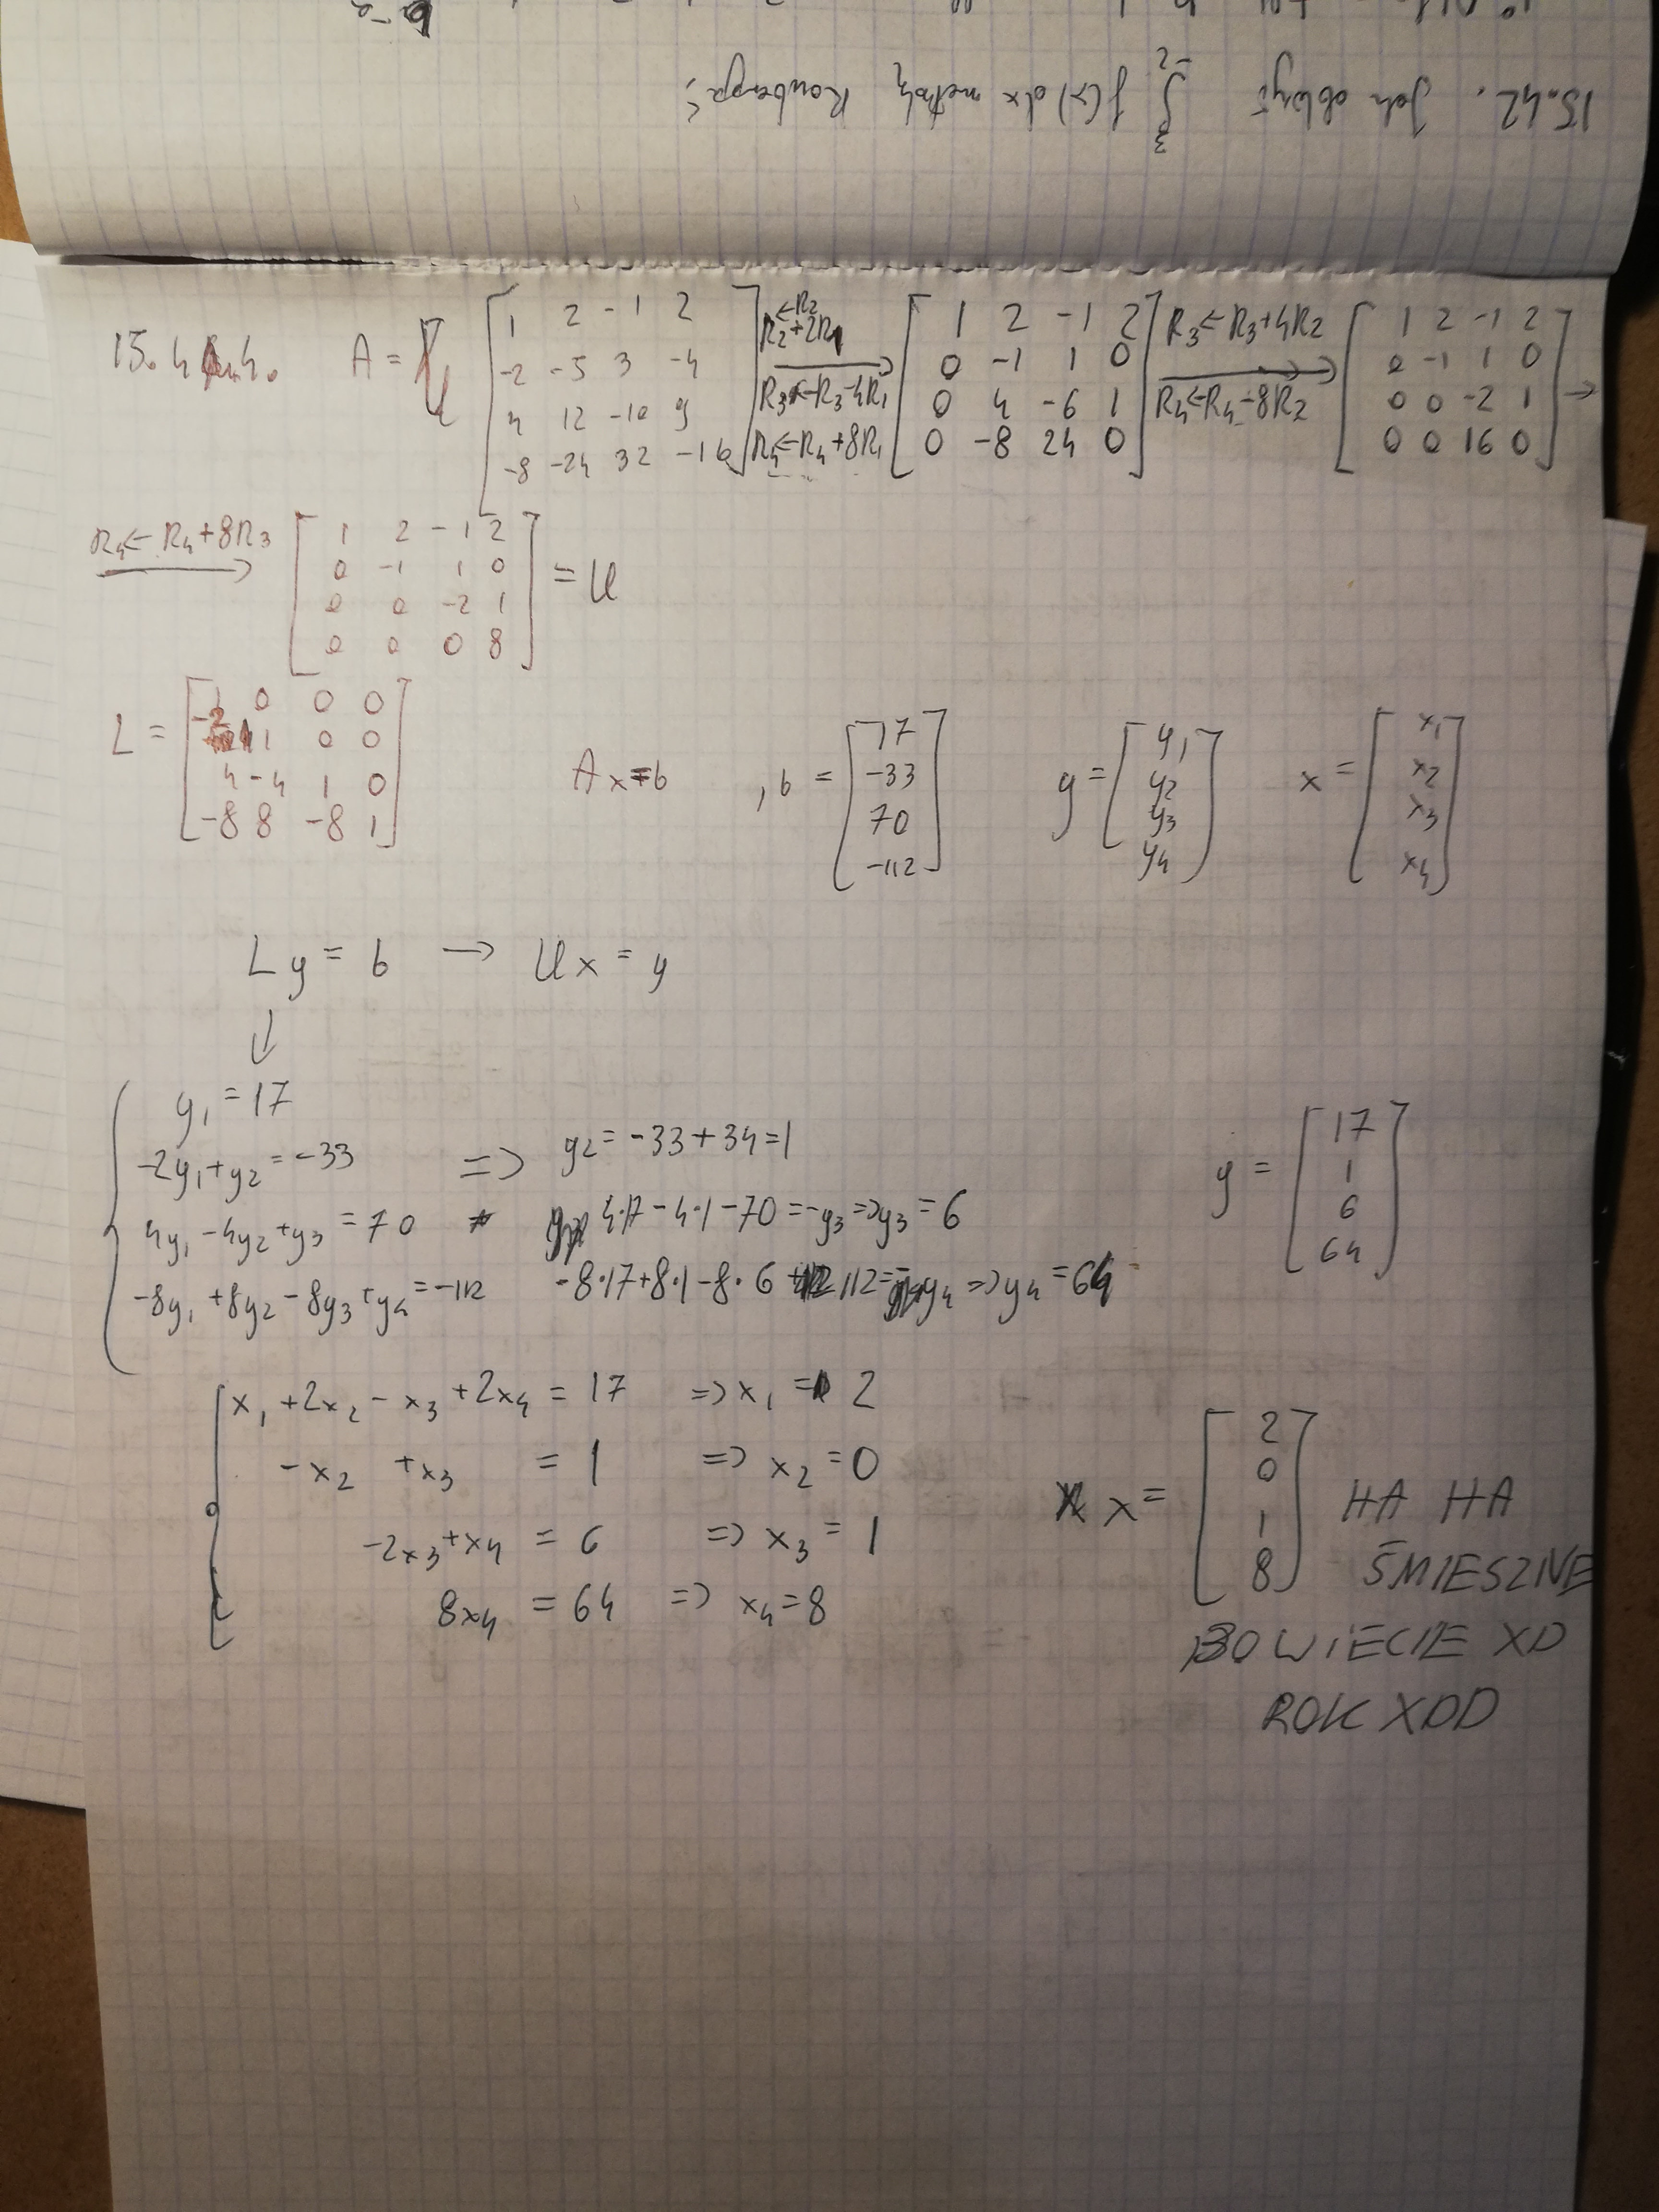 15.42. Jak obliczyć ∫_{-2}^{3} f(x) dx metodą Romberga?
15.44. A = [1 2 -1 2; -2 -5 3 -4; 4 12 -10 9; -8 -24 32 -16] R2 ← R2+2R1, R3 ← R3-4R1, R4 ← R4+8R1 → [1 2 -1 2; 0 -1 1 0; 0 4 -6 1; 0 -8 24 0] R3 ← R3+4R2, R4 ← R4-8R2 → [1 2 -1 2; 0 -1 1 0; 0 0 -2 1; 0 0 16 0] →
R4 ← R4+8R3 → [1 2 -1 2; 0 -1 1 0; 0 0 -2 1; 0 0 0 8] = U
L = [1 0 0 0; -2 1 0 0; 4 -4 1 0; -8 8 -8 1] Ax=b , b = [17; -33; 70; -112] y = [y1; y2; y3; y4] x = [x1; x2; x3; x4]
Ly = b → Ux = y
↓
y1 = 17
-2y1+y2 = -33 => y2 = -33+34=1
4y1-4y2+y3 = 70 4·17-4·1-70=-y3=>y3=6
-8y1+8y2-8y3+y4=-112 -8·17+8·1-8·6+112=-y4=>y4=64
y = [17; 1; 6; 64]
x1+2x2-x3+2x4 = 17 =>x1=2
-x2+x3 = 1 => x2=0
-2x3+x4 = 6 => x3=1
8x4 = 64 => x4=8
x = [2; 0; 1; 8] HA HA
ŚMIESZNE
BO WIECIE XD
ROK XDD